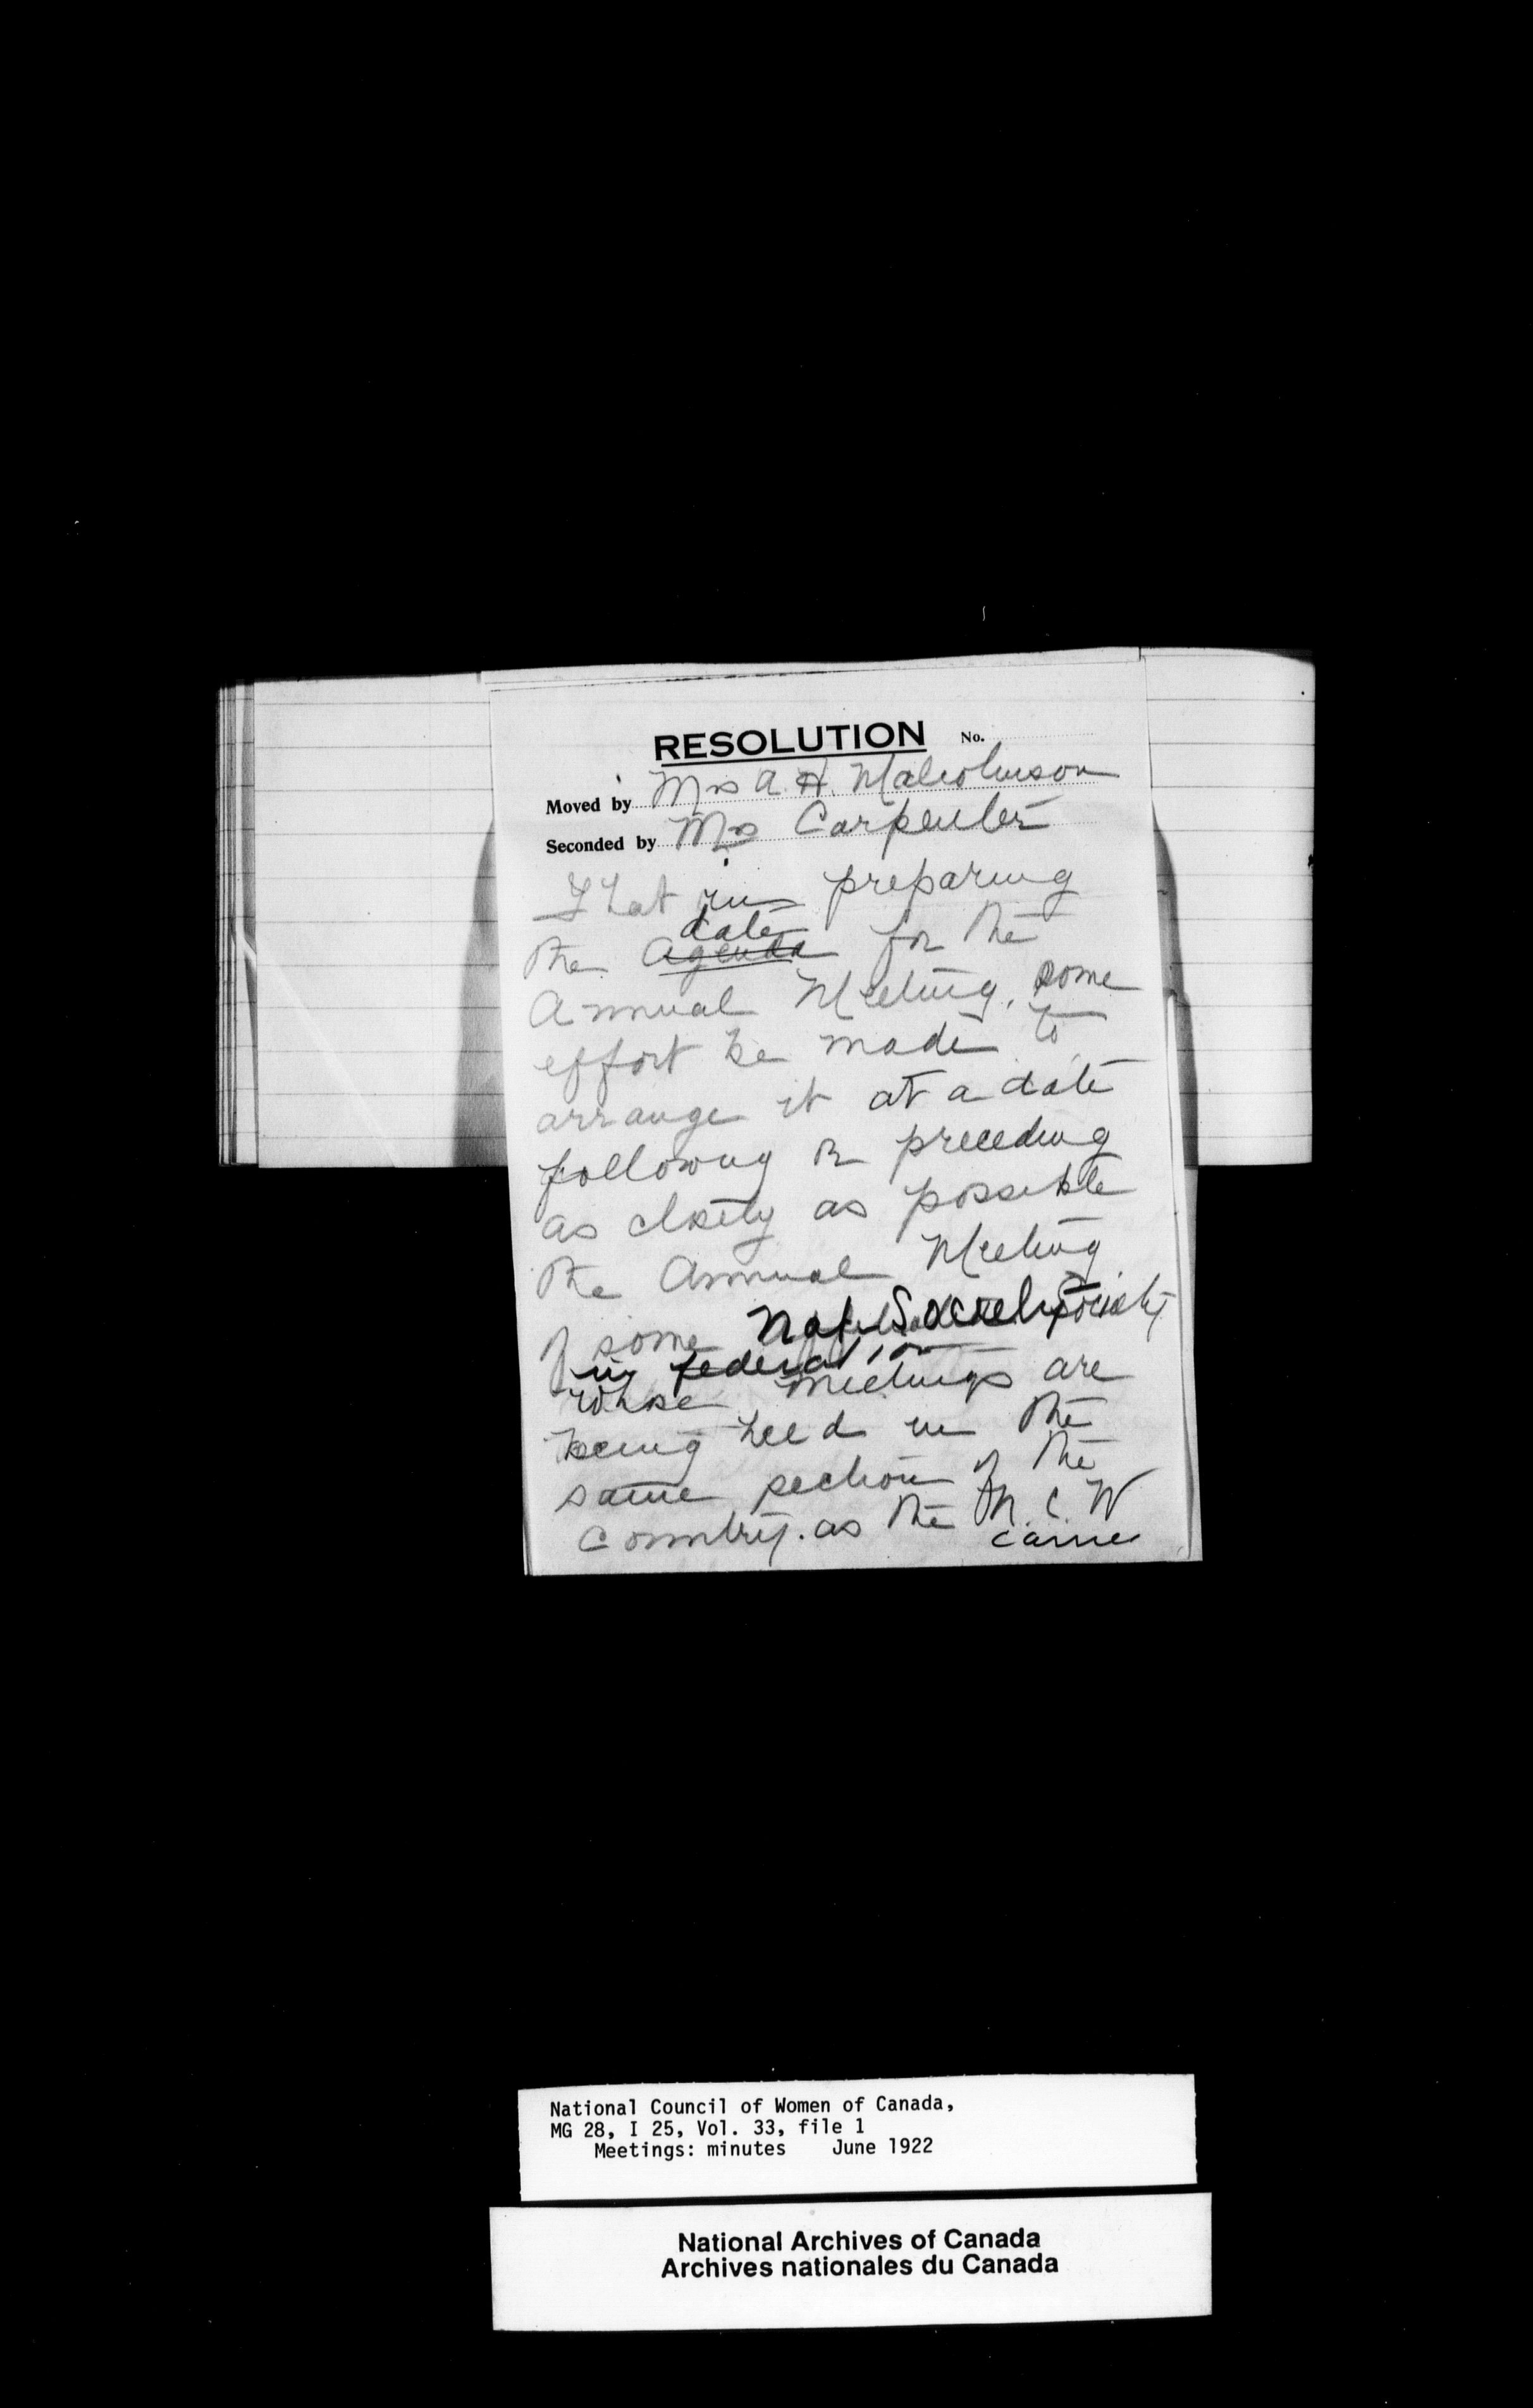 RESOLUTION No.
Moved by Mrs A. H. Malcolmson
Seconded by Mrs Carpenter
That in preparing
date
the Agenda for the
Annual Meeting, some
effort be made to
arrange it at a date
following or preceding
as closely as possible
the Annual Meeting
of some Nat. Society
in federation
whose meetings are
being held in the
same section of the
country. as the N. C. W
Carried
National Council of Women of Canada,
MG 28, I 25, Vol. 33, file 1
Meetings: minutes June 1922
National Archives of Canada
Archives nationales du Canada